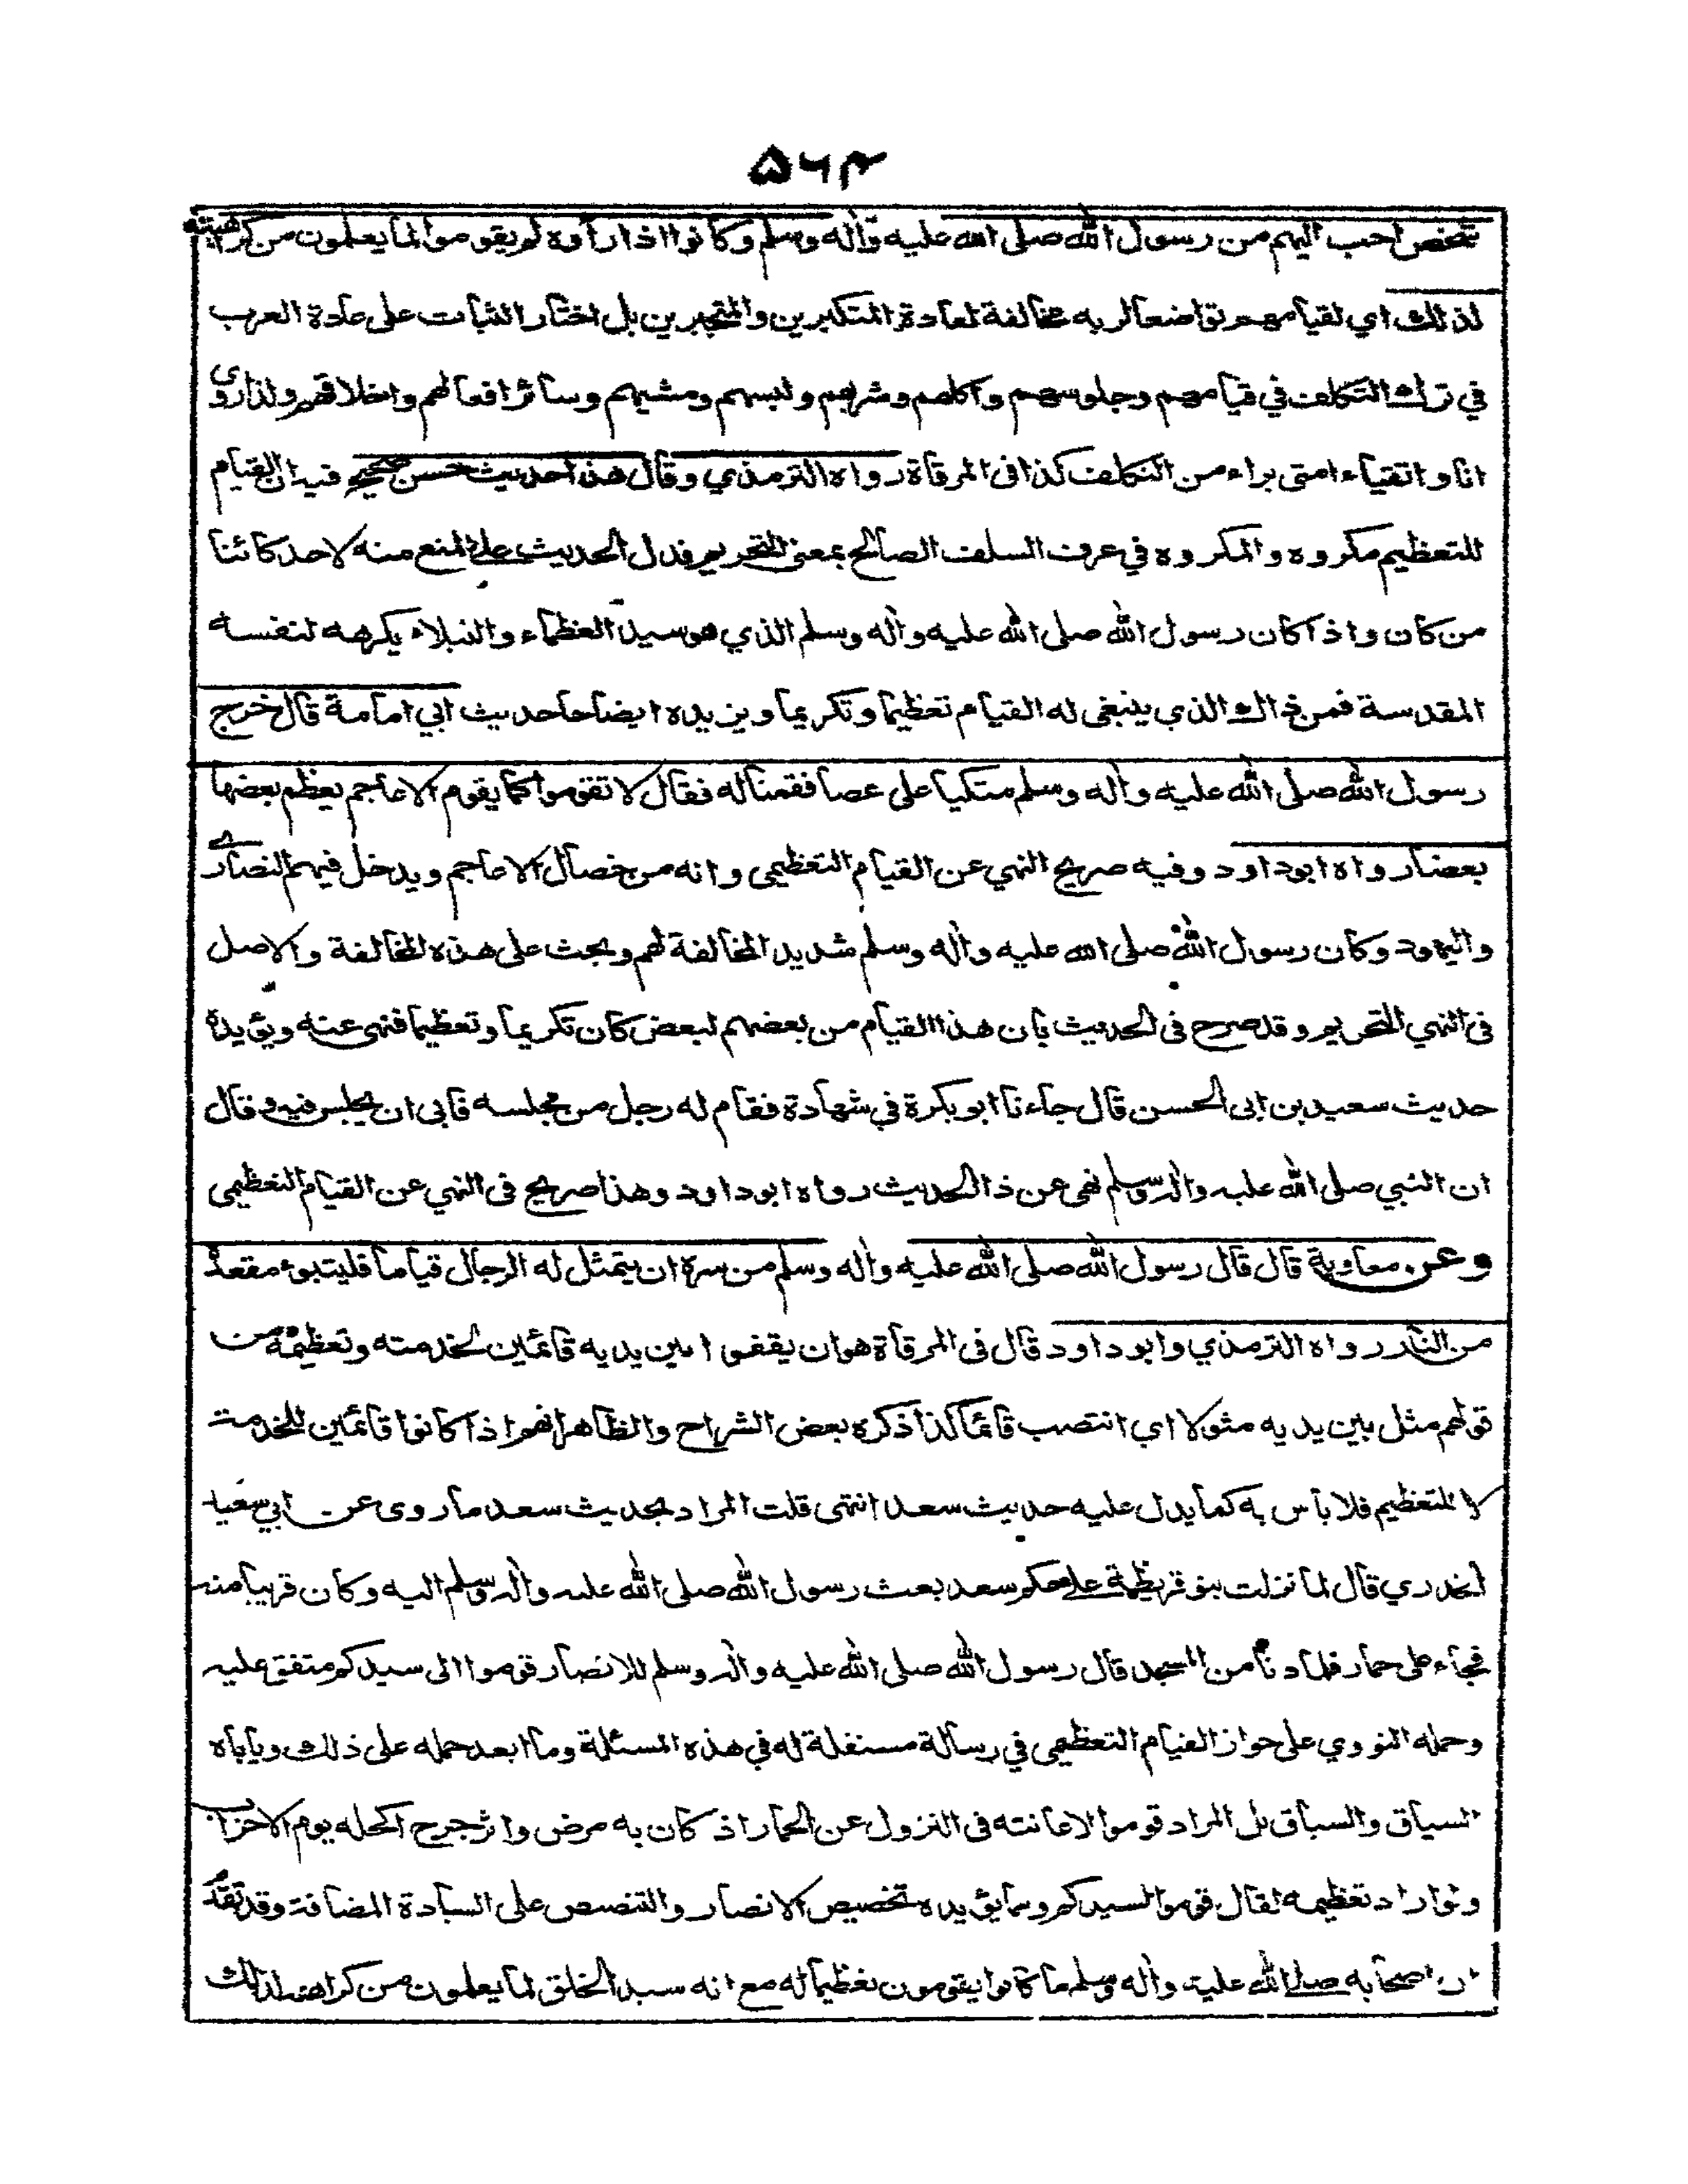 ۵۶۴
شخص احب اليهم من رسول الله صلى الله عليه وآله وسلم وكانوا اذا رأوه لم يقوموا لما يعلمون من كراهيته
لذلك اي لقيامهم تواضعا لربه مخالفة لعادة المتكبرين والمتجبرين بل اختار الثبات على عادة العرب
في ترك التكلف في قيامهم وجلوسهم واكلهم وشربهم ولبسهم ومشيهم وسائر افعالهم واخلاقهم ولذا روي
انا واتقياء امتى براء من التكلف كذا فى المرقاة رواه الترمذي وقال هذا حديث حسن صحيح فيه ان القيام
للتعظيم مكروه والمكروه في عرف السلف الصالح بمعنى التحريم فدل الحديث على المنع منه لاحد كائنا
من كان واذا كان رسول الله صلى الله عليه وآله وسلم الذي هو سيد العظماء والنبلاء يكرهه لنفسه
المقدسة فمن ذاك الذي ينبغى له القيام تعظيما وتكريما ويزيده ايضاحا حديث ابي امامة قال خرج
رسول الله صلى الله عليه وآله وسلم متكيا على عصا فقمنا له فقال لا تقوموا كما يقوم الاعاجم يعظم بعضها
بعضا رواه ابوداود وفيه صريح النهي عن القيام التعظيمى وانه من خصال الاعاجم ويدخل فيهم النصارى
واليهود وكان رسول الله صلى الله عليه وآله وسلم شديد المخالفة لهم ويحث على هذه المخالفة والاصل
فى النهي التحريم وقد صرح فى الحديث بان هذا القيام من بعضهم لبعض كان تكريما وتعظيما فنهى عنه ويؤيده
حديث سعيد بن ابى الحسن قال جاءنا ابو بكرة في شهادة فقام له رجل من مجلسه فابى ان يجلس فيه وقال
ان النبي صلى الله عليه وآله وسلم نهى عن ذا الحديث رواه ابوداود وهذا صريح فى النهي عن القيام التعظيمى
وعن معاوية قال قال رسول الله صلى الله عليه وآله وسلم من سره ان يتمثل له الرجال قياما فليتبوء مقعده
من النار رواه الترمذي وابوداود قال فى المرقاة هو ان يقفوا بين يديه قائمين لخدمته وتعظيمه من
قولهم مثل بين يديه مثولا اي انتصب قائما كذا ذكره بعض الشراح والظاهر انهم اذا كانوا قائمين للخدمة
لا للتعظيم فلا بأس به كما يدل عليه حديث سعد انتهى قلت المراد بحديث سعد ما روى عن ابي سعيد
الخدري قال لما نزلت بنو قريظة على حكم سعد بعث رسول الله صلى الله عليه وآله وسلم اليه وكان قريبا منه
فجاء على حمار فلما دنا من المسجد قال رسول الله صلى الله عليه وآله وسلم للانصار قوموا الى سيدكم متفق عليه
وحمله النووي على جواز القيام التعظيمى في رسالة مستقلة له في هذه المسئلة وما ابعد حمله على ذلك ويأباه
السياق والسباق بل المراد قوموا لاعانته فى النزول عن الحمار اذ كان به مرض واثر جرح اكحله يوم الاحزاب
ولو اراد تعظيمه لقال قوموا لسيدكم ومما يؤيده تخصيص الانصار والتنصيص على السيادة المضافة وقد تقدم
ان اصحابه صلى الله عليه وآله وسلم ما كانوا يقومون تعظيما له مع انه سيد الخلق لما يعلمون من كراهته لذلك